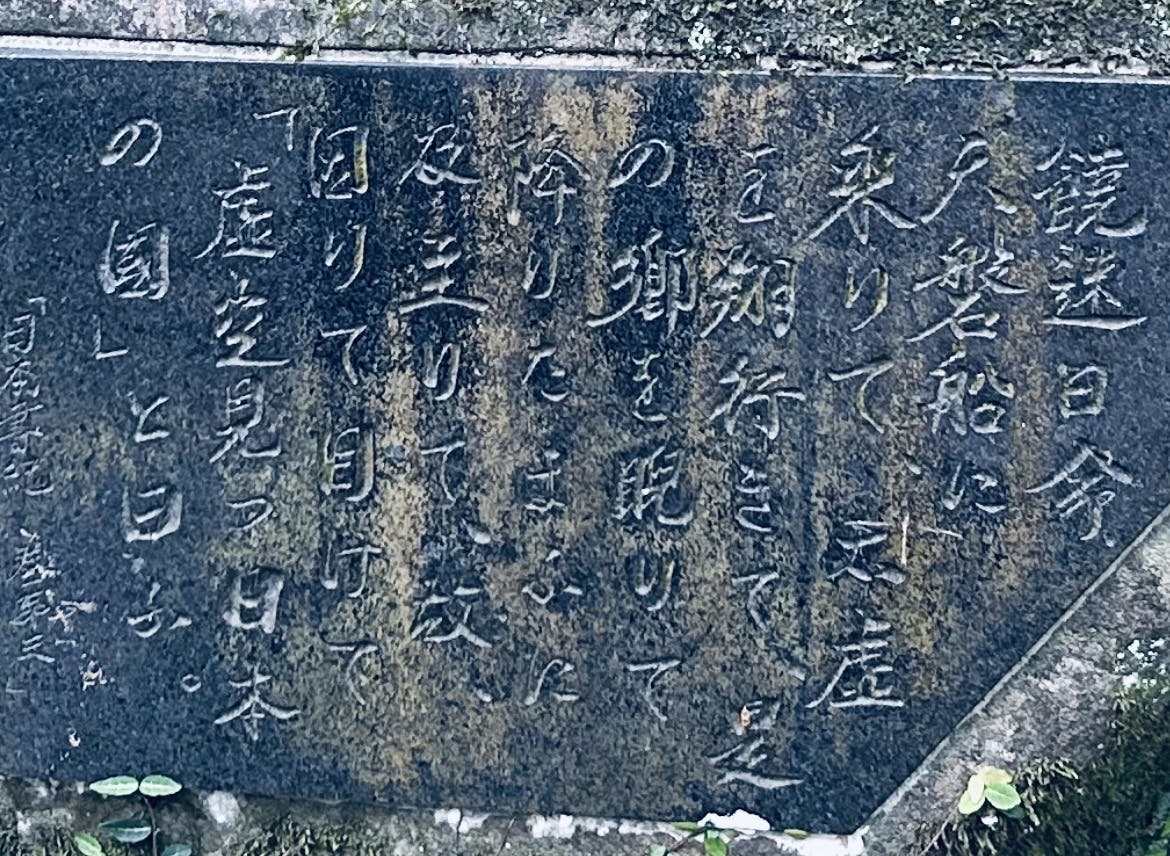 饒速日命
天磐船に
乗りて、天虚
を翔行きて、是
の郷を睨りて
降りたまふに
及至りて、故、
因りて目けて
「虚空見つ日本
の國」と曰ふ。
「日本書紀